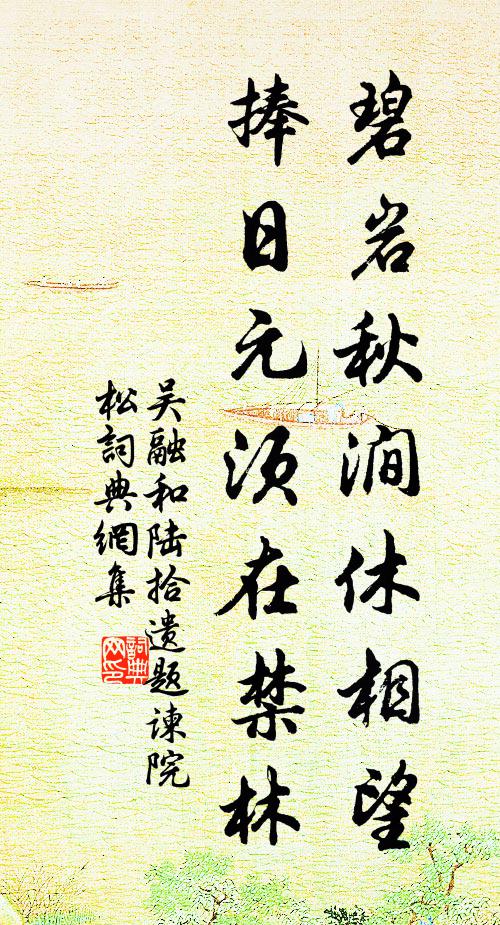 碧岩秋涧休相望
捧日元须在禁林
吴融和陆拾遗题谏院
松詞典網集
詞典网印